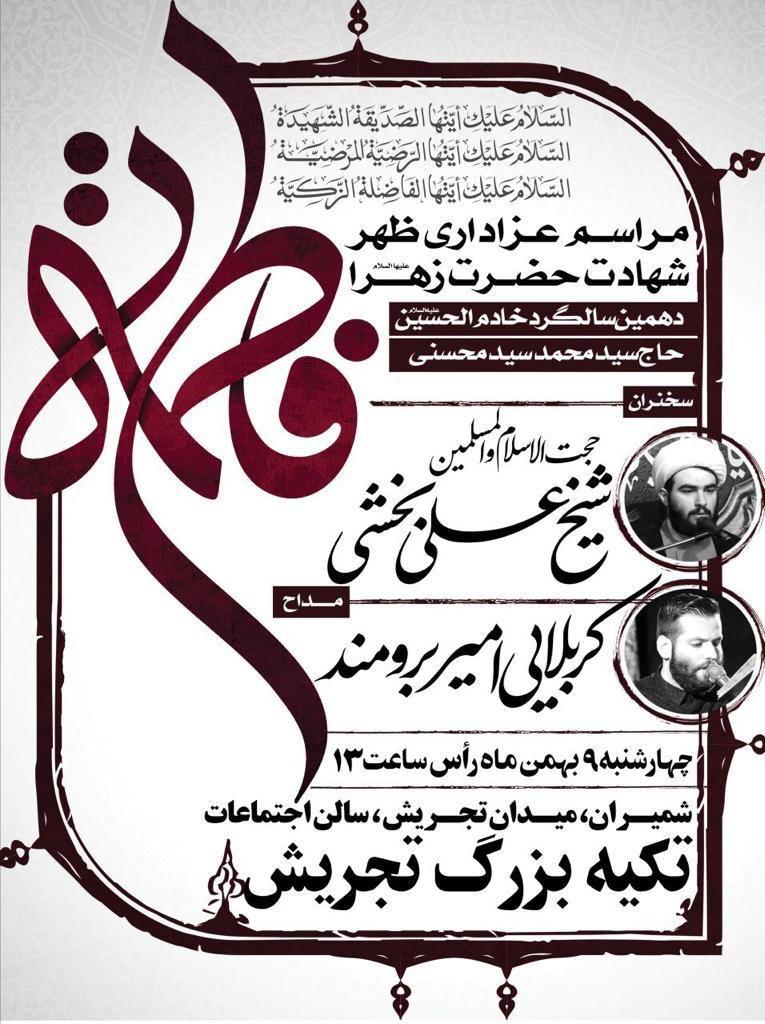 فاطمة
السَّلَامُ عَلَيْكِ أَيَّتُهَا الصِّدِّيقَةُ الشَّهِيدَةُ
السَّلَامُ عَلَيْكِ أَيَّتُهَا الرَّضِيَّةُ الْمَرْضِيَّةُ
السَّلَامُ عَلَيْكِ أَيَّتُهَا الْفَاضِلَةُ الزَّكِيَّةُ
مراسم عزاداری ظهر
شهادت حضرت زهرا علیها السلام
دهمین سالگرد خادم الحسین علیه السلام
حاج سید محمد سید محسنی
سخنران
حجت الاسلام والمسلمین
شیخ علی بخشی
مداح
کربلایی امیر برومند
چهارشنبه ۹ بهمن ماه رأس ساعت ۱۳
شمیران، میدان تجریش، سالن اجتماعات
تکیه بزرگ تجریش